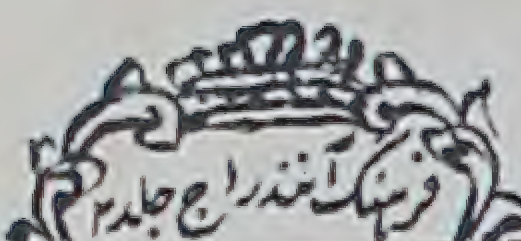 فرہنگ آنندراج جلد ۳